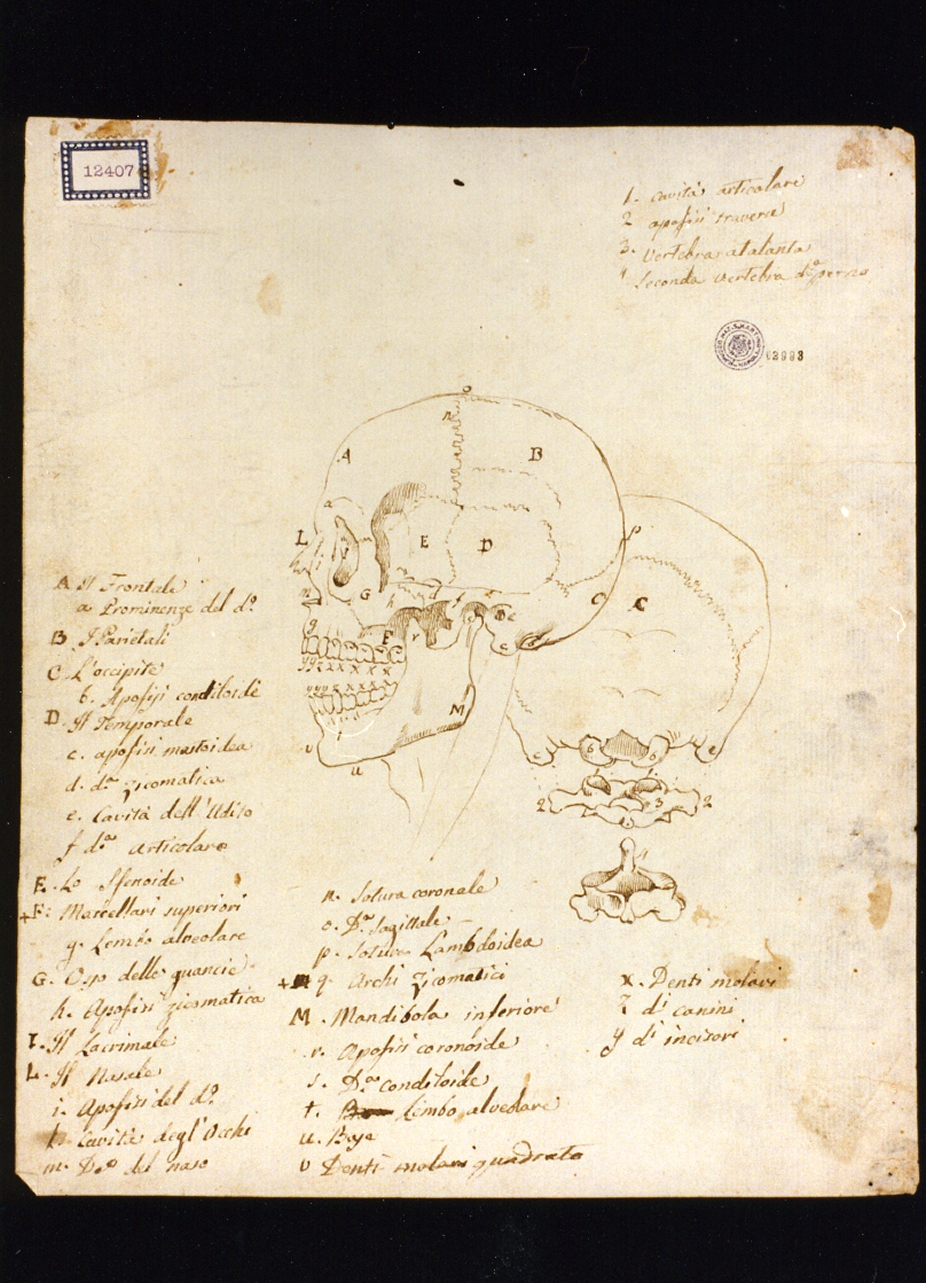 12407
1. cavità articolare
2 apofisi traverse
3. vertebra atalanta
Seconda vertebra d.ª perno
02993
o
n
A
B
a
L
E
D
p
G
h
d
C
C
g
F
r
e
c
M
v
u
c
b
b
c
2
3
2
A Il Frontale
a Prominenze del d.º
B I Parietali
C L'occipite
b. Apofisi condiloide
D. Il Temporale
c. apofisi mastoidea
d. d.ª zicomatica
e. Cavità dell'Udito
f d.ª articolare
E. Lo Sfenoide
+F: Mascellari superiori
g. Lembo alveolare
G. Osso delle guancie
h. Apofisi zicomatica
I. Il Lacrimale
L. Il Nasale
i. Apofisi del d.º
Cavità degl'Occhi
m. D.º del naso
n. Sotura coronale
o. D.ª Sagittale
p. Sotura Lambdoidea
+ q. Archi Zicomatici
M. Mandibola inferiore
r. Apofisi coronoide
s. D.ª condiloide
t. Lembo alveolare
u. Base
v Denti molari quadrato
x. Denti molari
z d.i canini
y d.i incisori